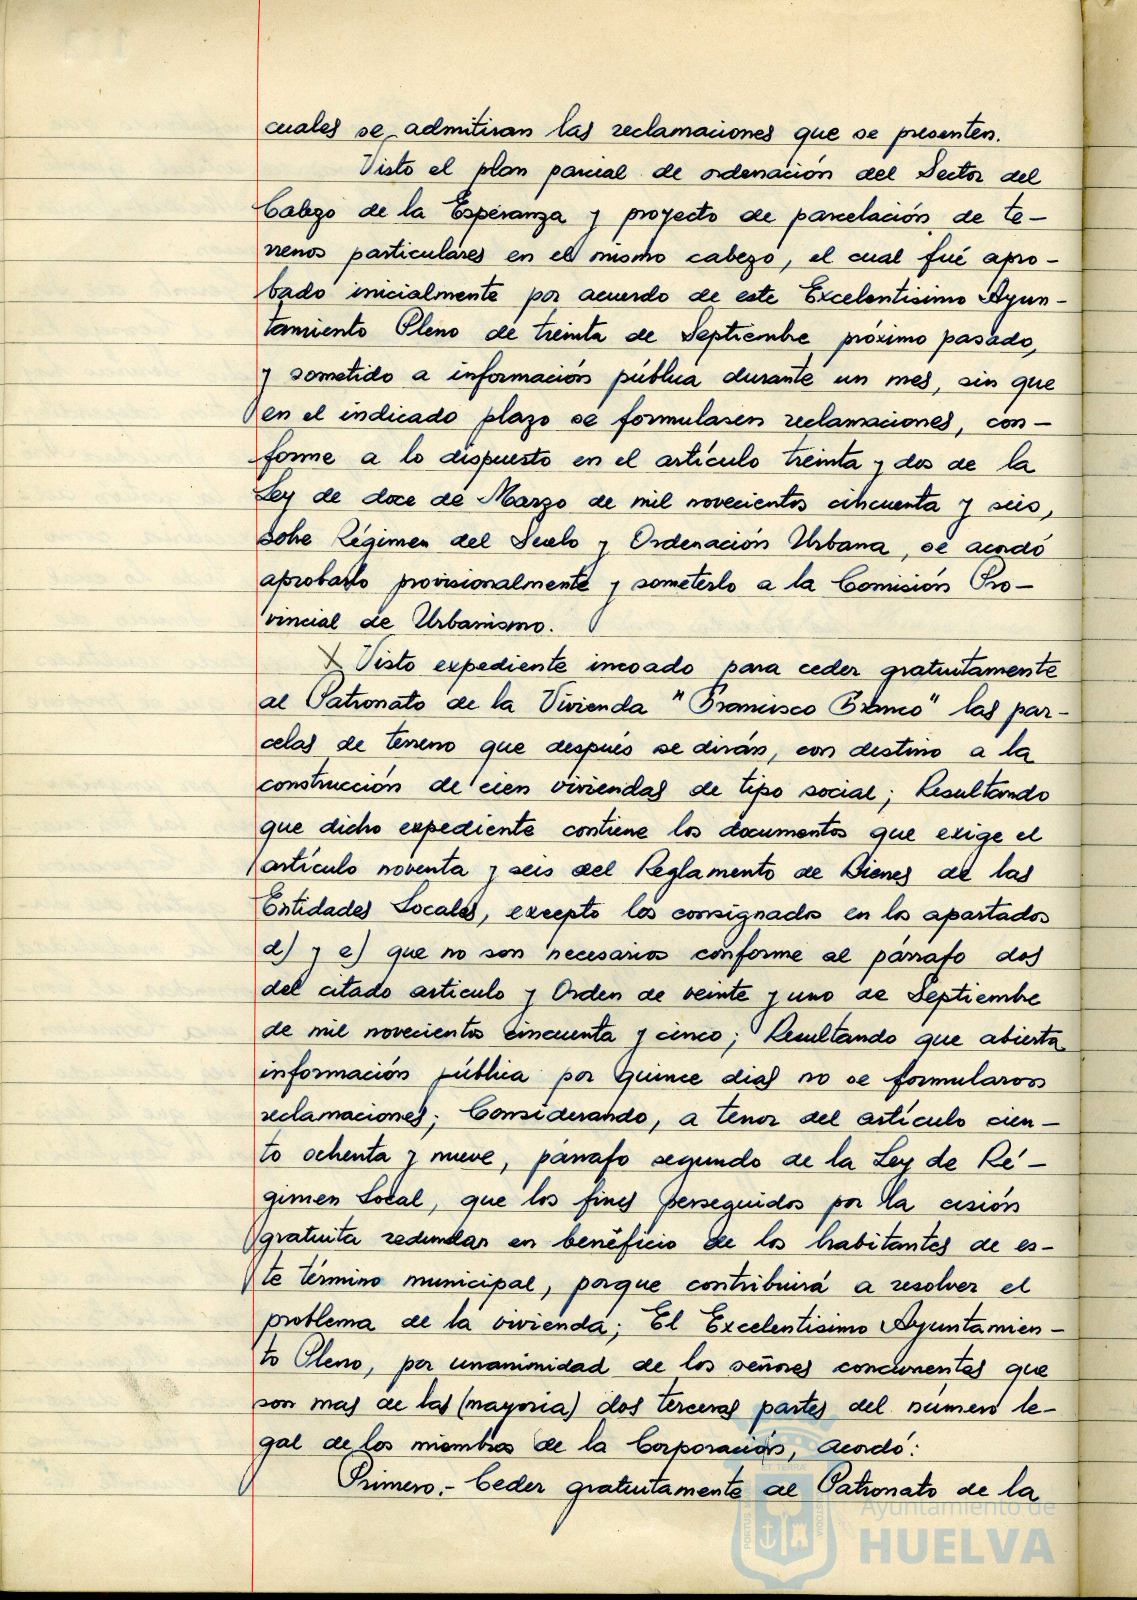 cuales se admitiran las reclamaciones que se presenten.
Visto el plan parcial de ordenación del Sector del
Cabezo de la Esperanza y proyecto de parcelación de te-
rrenos particulares en el mismo cabezo, el cual fué apro-
bado inicialmente por acuerdo de este Excelentisimo Ayun-
tamiento Pleno de treinta de Septiembre próximo pasado,
y sometido a información pública durante un mes, sin que
en el indicado plazo se formulasen reclamaciones, con-
forme a lo dispuesto en el artículo treinta y dos de la
Ley de doce de Marzo de mil novecientos cincuenta y seis,
sobre Régimen del Suelo y Ordenación Urbana, se acordó
aprobarlo provisionalmente y someterlo a la Comisión Pro-
vincial de Urbanismo.
X Visto expediente incoado para ceder gratuitamente
al Patronato de la Vivienda "Francisco Franco" las par-
celas de terreno que después se dirán, con destino a la
construcción de cien viviendas de tipo social; Resultando
que dicho expediente contiene los documentos que exige el
artículo noventa y seis del Reglamento de Bienes de las
Entidades Locales, excepto los consignados en los apartados
d) y e) que no son necesarios conforme al párrafo dos
del citado articulo y Orden de veinte y uno de Septiembre
de mil novecientos cincuenta y cinco; Resultando que abierta
información pública por quince dias no se formularon
reclamaciones; Considerando, a tenor del artículo cien-
to ochenta y nueve, párrafo segundo de la Ley de Ré-
gimen Local, que los fines perseguidos por la cesión
gratuita redundan en beneficio de los habitantes de es-
te término municipal, porque contribuirá a resolver el
problema de la vivienda; El Excelentisimo Ayuntamien-
to Pleno, por unanimidad de los señores concurrentes que
son mas de las (mayoria) dos terceras partes del número le-
gal de los miembros de la Corporación, acordó:
Primero.- Ceder gratuitamente al Patronato de la
Ayuntamiento de
HUELVA